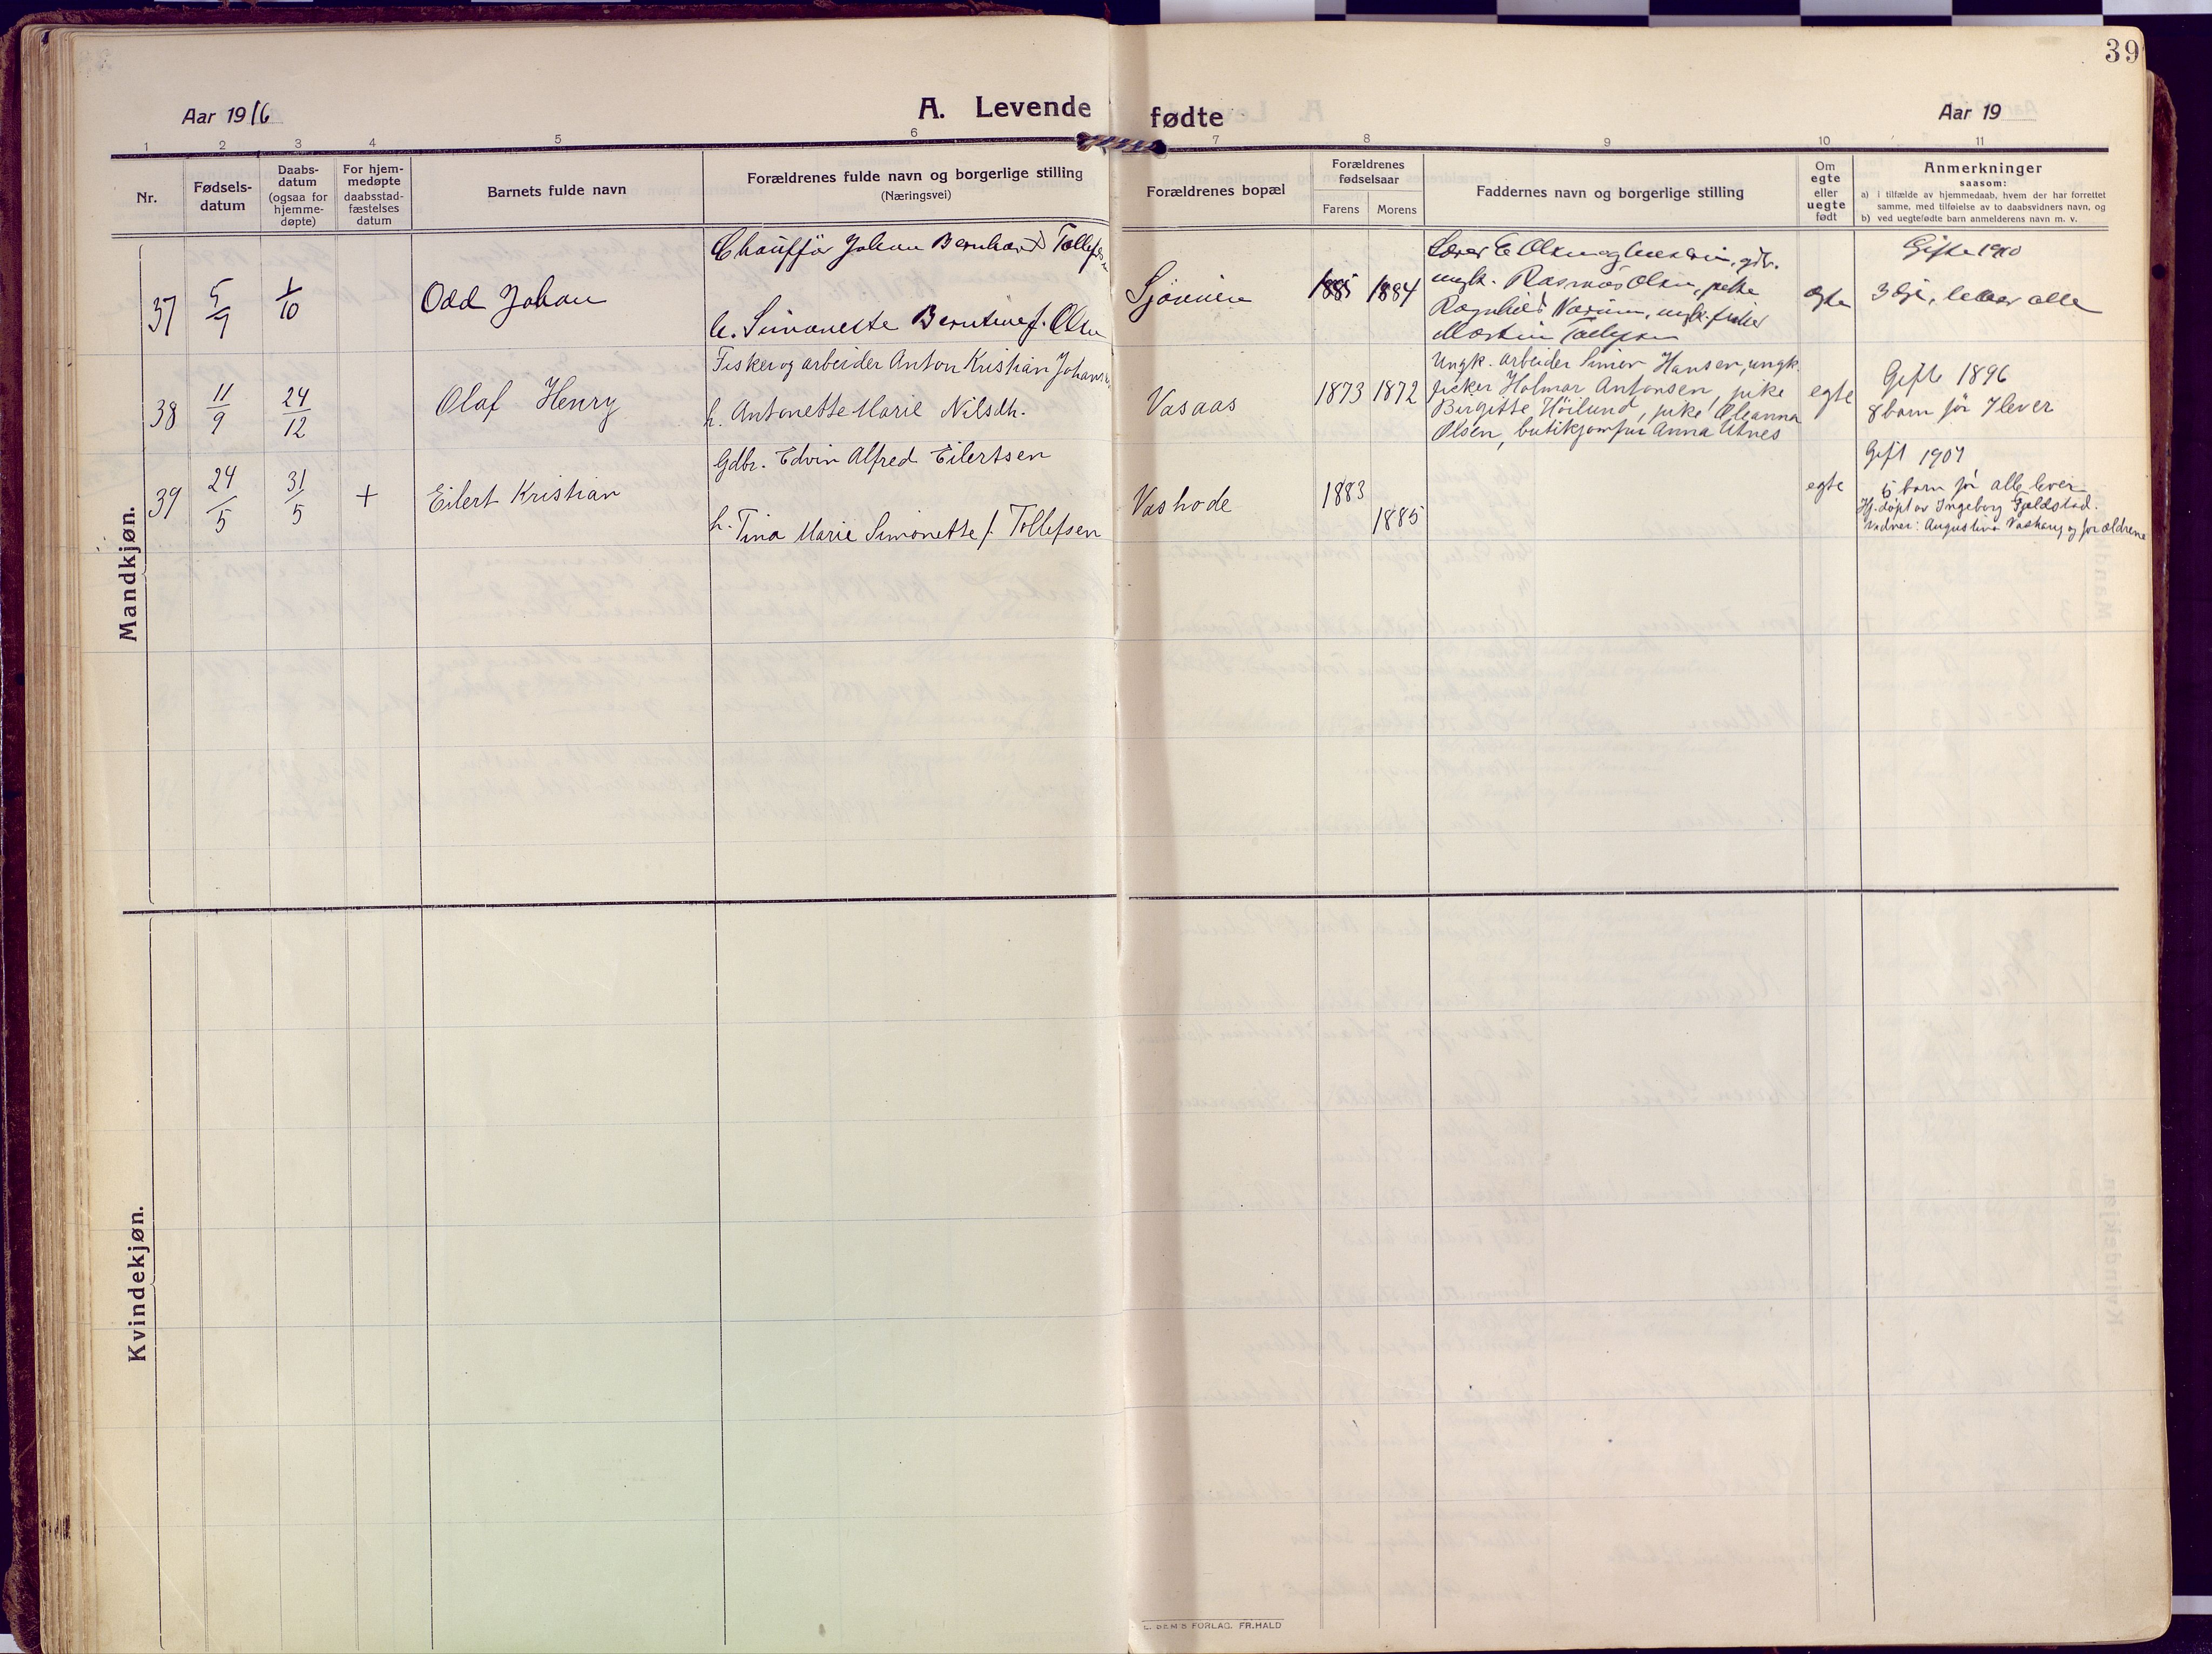 39
Aar 1916
A. Levende fødte
Aar 19
1 2 3 4 5 6 7 8 9 10 11
Nr.
Fødsels-
datum
Daabs-
datum
(ogsaa for
hjemme-
døpte)
For hjem-
medøpte
daabsstad-
fæstelses
datum
Barnets fulde navn
Forældrenes fulde navn og borgerlige stilling
(Næringsvei)
Forældrenes bopæl
Forældrenes
fødselsaar
Farens Morens
Faddernes navn og borgerlige stilling
Om
egte
eller
uegte
født
Anmerkninger
saasom:
a) i tilfælde av hjemmedaab, hvem der har forrettet
samme, med tilføielse av to daabsvidners navn, og
b) ved uegtefødte barn anmelderens navn m. v.
Mandkjøn.
37
5/7
1/10
Odd Johan
Chauffør Johan Bernhard Tollefsen
h. Simonette Berntine f. Olsen
1885 1884
Lærer E Olsen og hustru, gdbr.
ungk. Rasmus Olsen, pike
Ragnhild
egte
Gifte 1910
lever alle
38
11/9
24/12
Olaf Henry
Fisker og arbeider Anton Kristian Johans.
h. Antonette Marie Nilsdh.
Vasaas
1873 1872
Ungk. arbeider Simer Hansen, ungk.
fisker Holmar Antonsen, pike
Birgitte Høilund, pike Oleanna
Olsen, butikjomfru Anna Utnes
egte
Gifte 1896
8 barn før 7 lever
39
24/5
31/5
+
Eilert Kristian
Gdbr. Edvin Alfred Eilertsen
h. Tina Marie Simonette f. Tollefsen
Vashode
1883
1885
egte
Gift 1907
barn før alle lever
Hj. døpt av Ingeborg Fjeldstad.
Vidner: Augustina Vashaug og forældrene
Kvindekjøn.
FORLAG. FR. HALD